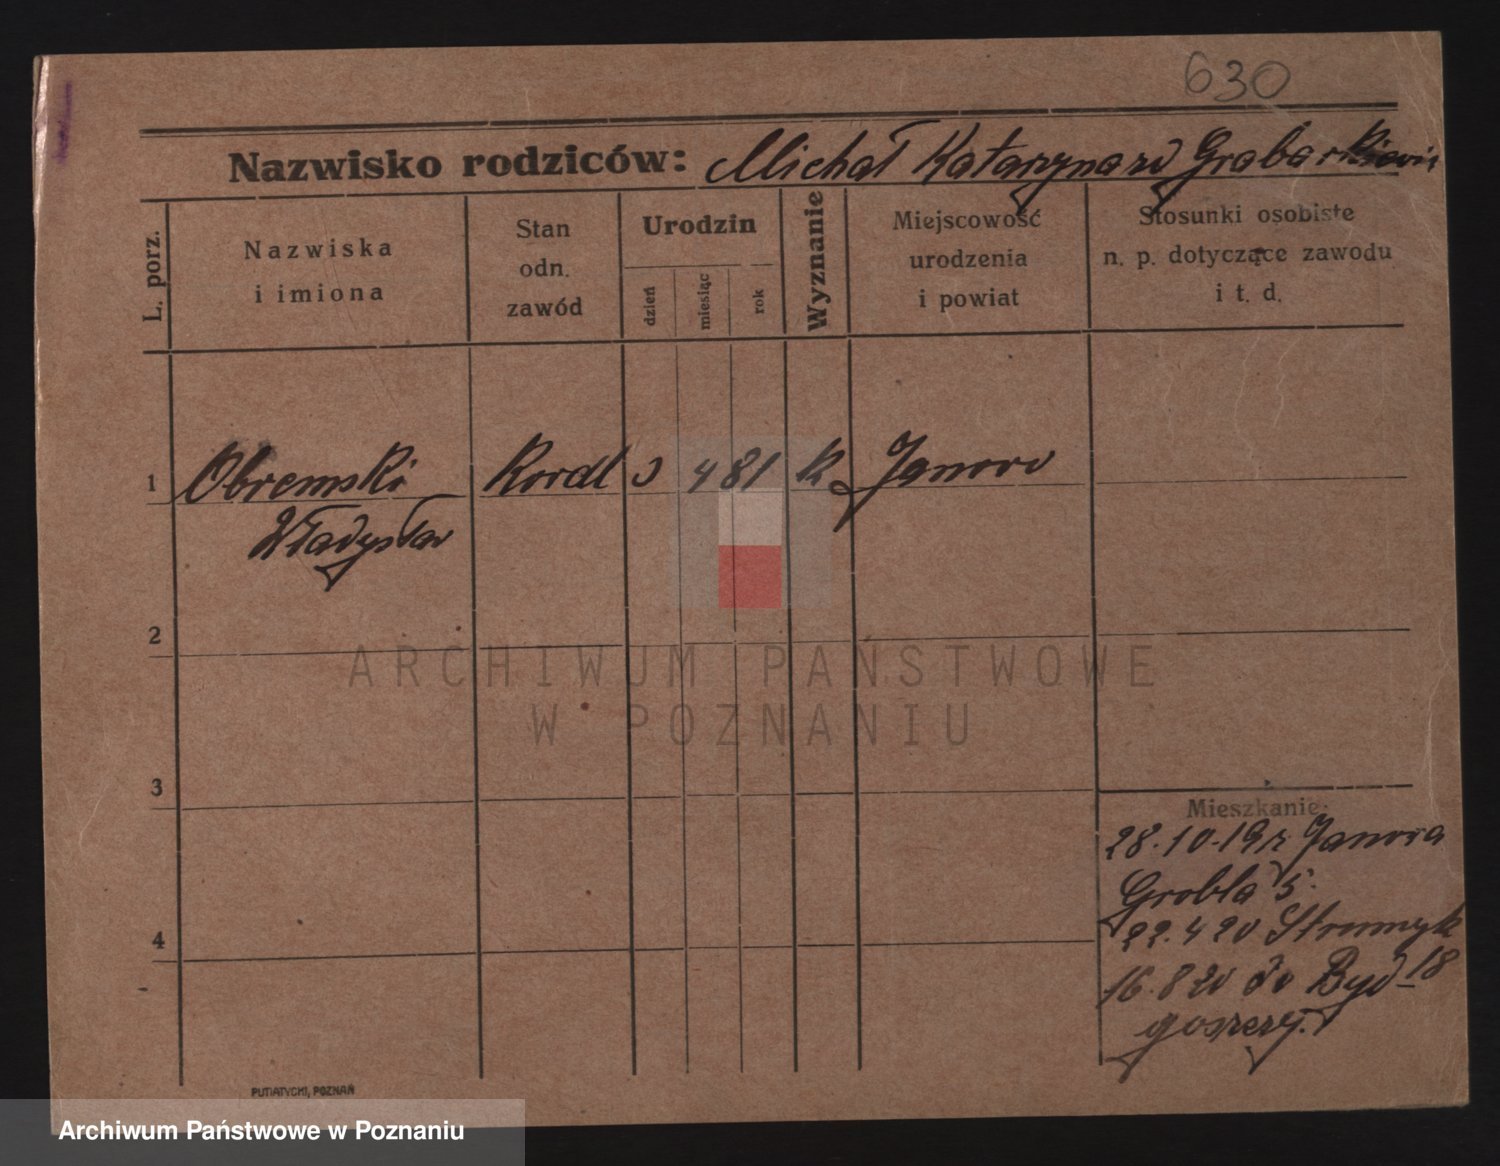 630
Nazwisko rodziców: Michał Katarzyna zd Grabarkiewicz
L. porz.
Nazwiska
i imiona
Stan
odn.
zawód
Urodzin
dzień
miesiąc
rok
Wyznanie
Miejscowość
urodzenia
i powiat
Stosunki osobiste
n. p. dotyczące zawodu
i t. d.
1 Obremski 4 81 k Janowo
Władysław
2
ARCHIWUM PAŃSTWOWE
W POZNANIU
3
Mieszkanie:
28.10.19 r
Grobla 5.
4
22.4 20 Strumyk
18
16.8 20 do Byd-
goszczy.
PUTIATYCKI, POZNAŃ
Archiwum Państwowe w Poznaniu